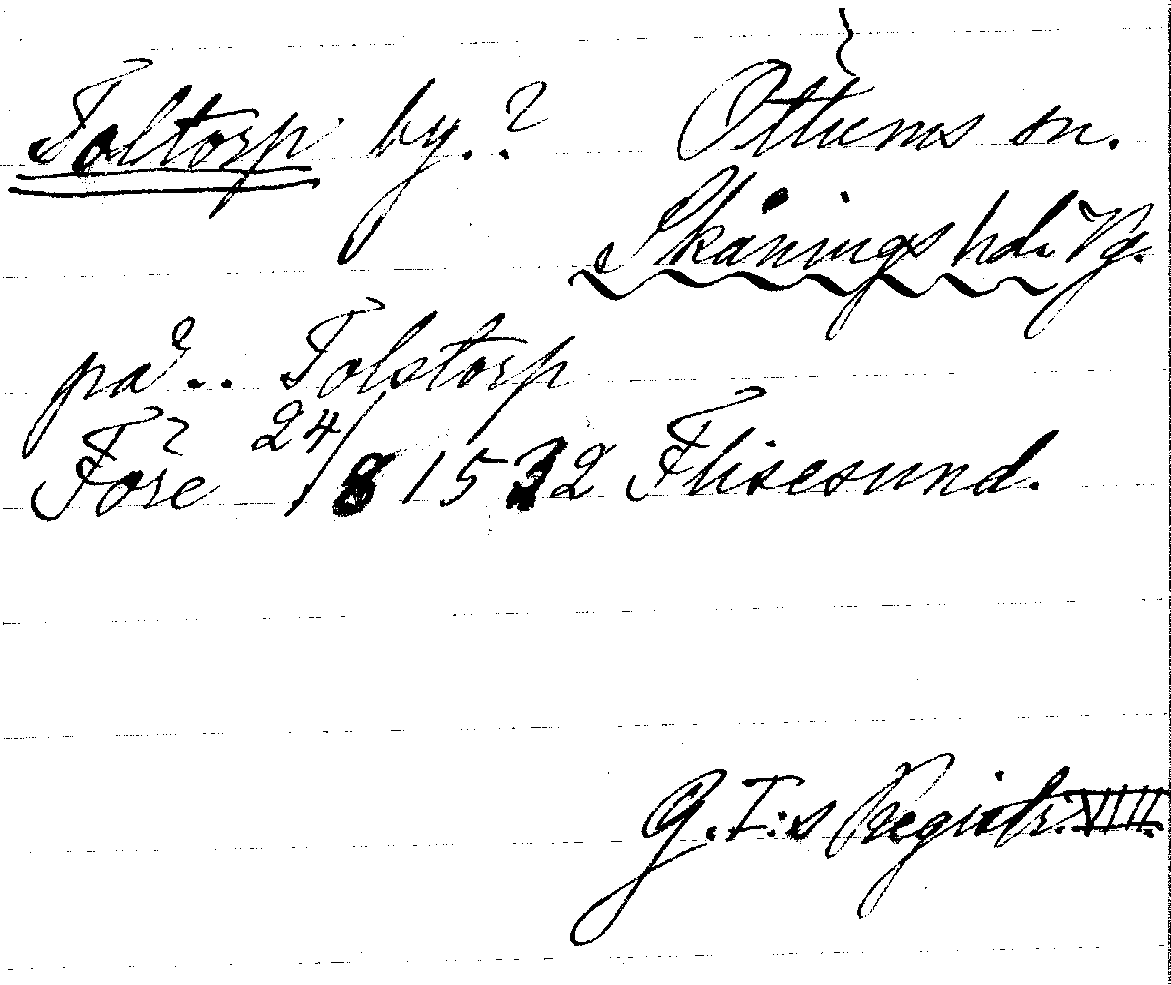 Toltorp by.? Ottums sn.
Skånings hd. Vg.
på.. Tolstorp
Före 24/8 1532 Flisesund.
G. I:s Registr. VIII.